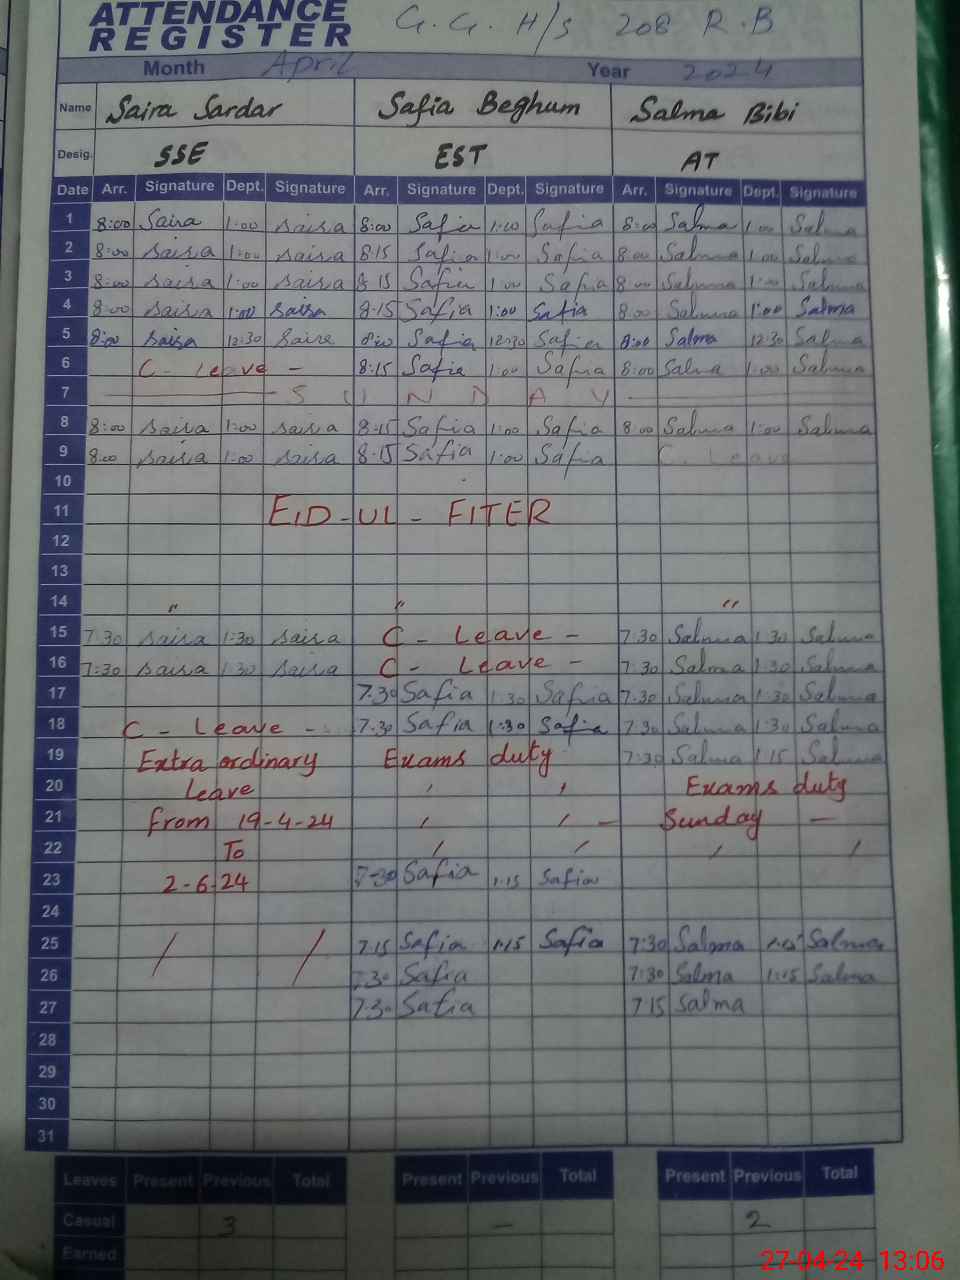 ATTENDANCE G.G. H/S 208 R.B
REGISTER
Month April Year 2024
Name Saira Sardar Safia Beghum Salma Bibi
Desig. SSE EST AT
Date Arr. Signature Dept. Signature Arr. Signature Dept. Signature Arr. Signature Dept. Signature
1 8:00 Saira 1:00 Saira 8:00 Safia 1:00 Safia 8:00 Salma 1:00 Salma
2 8:00 Saira 1:00 Saira 8:15 Safia 1:00 Safia 8:00 Salma 1:00 Salma
3 8:00 Saira 1:00 Saira 8:15 Safia 1:00 Safia 8:00 Salma 1:00 Salma
4 8:00 Saira 1:00 Saira 8:15 Safia 1:00 Safia 8:00 Salma 1:00 Salma
5 8:00 Saira 12:30 Saira 8:00 Safia 12:30 Safia 8:00 Salma 12:30 Salma
6 C - Leave - 8:15 Safia 1:00 Safia 8:00 Salma 1:00 Salma
7 SUNDAY
8 8:00 Saira 1:00 Saira 8:15 Safia 1:00 Safia 8:00 Salma 1:00 Salma
9 8:00 Saira 1:00 Saira 8:15 Safia 1:00 Safia C. Leave
10
11 EID-UL-FITER
12
13
14 " " "
15 7:30 Saira 1:30 Saira C - Leave - 7:30 Salma 1:30 Salma
16 7:30 Saira 1:30 Saira C - Leave - 7:30 Salma 1:30 Salma
17 7:30 Safia 1:30 Safia 7:30 Salma 1:30 Salma
18 C - Leave - 7:30 Safia 1:30 Safia 7:30 Salma 1:30 Salma
19 Extra ordinary Exams duty 7:30 Salma 1:15 Salma
20 Leave Exams duty
21 From 19-4-24 Sunday -
22 To
23 2-6-24 7-30 Safia 1:15 Safia
24
25 7:15 Safia 1:15 Safia 7:30 Salma Salma
26 7:30 Safia 7:30 Salma 1:15 Salma
27 7:30 Safia 7:15 Salma
28
29
30
31
Leaves Present Previous Total Present Previous Total Present Previous Total
Casual 3 - 2
Earned
27-04-24 13:06